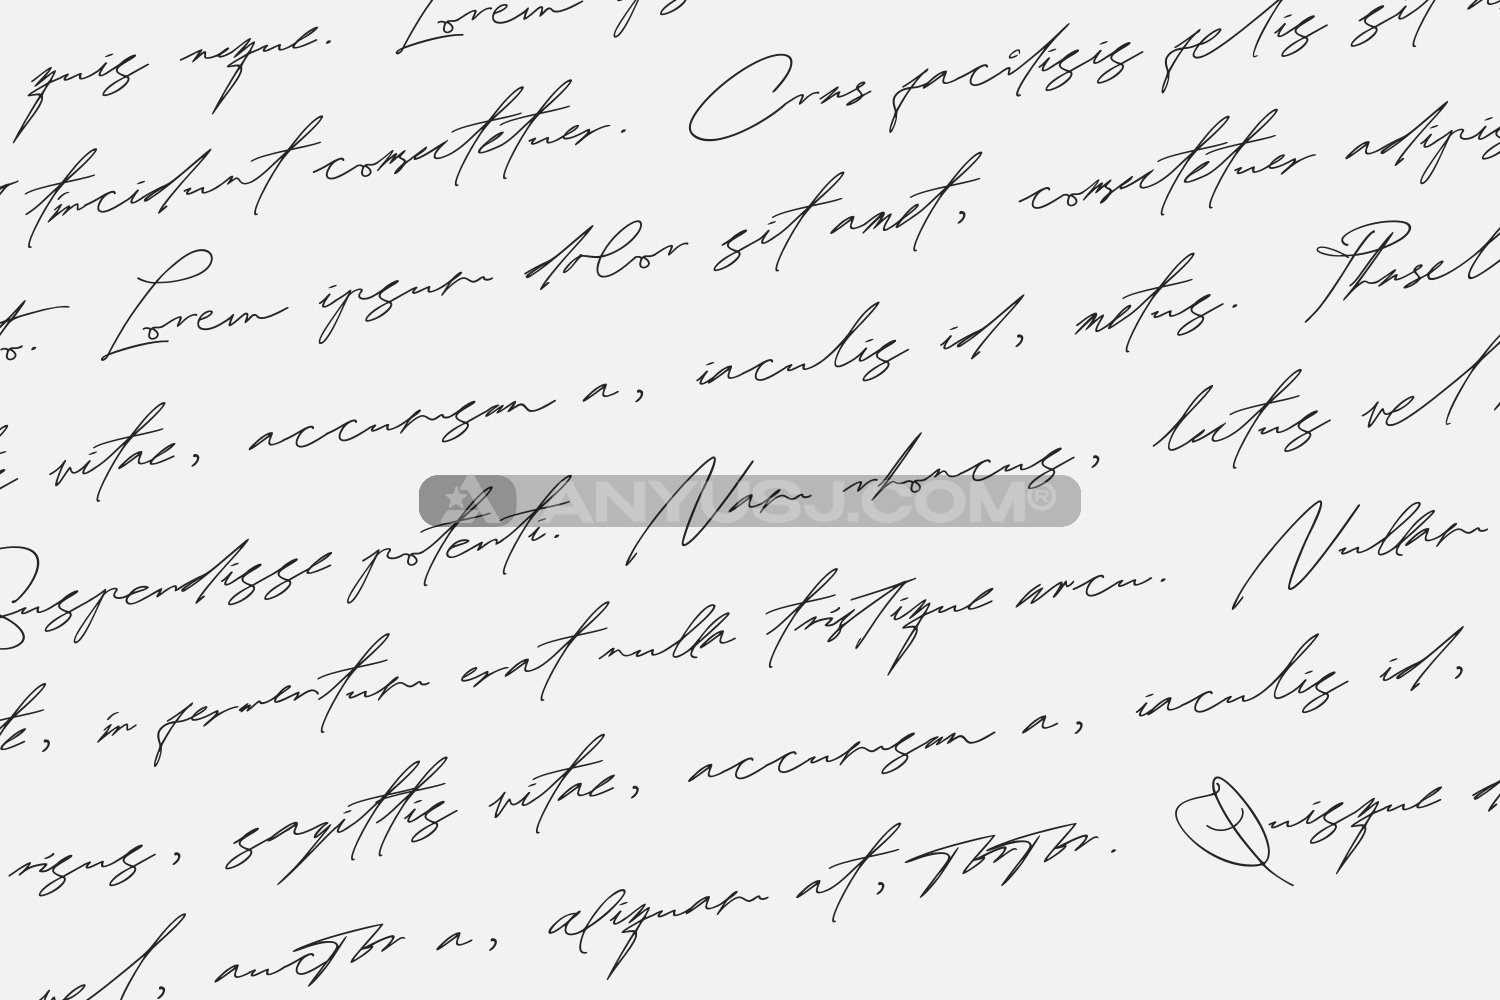 quis neque. Lorem
tincidunt consectetuer. Cras facilisis felis sit
Lorem ipsum dolor sit amet, consectetuer adipis
vitae, accumsan a, iaculis id, metus. Phasel
Suspendisse potenti. Nam rhoncus, lectus vel
te, in fermentum erat nulla tristique arcu. Nullam
risus, sagittis vitae, accumsan a, iaculis id,
vel, auctor a, aliquam at, tortor. Quisque
ANYUSJ.COM®